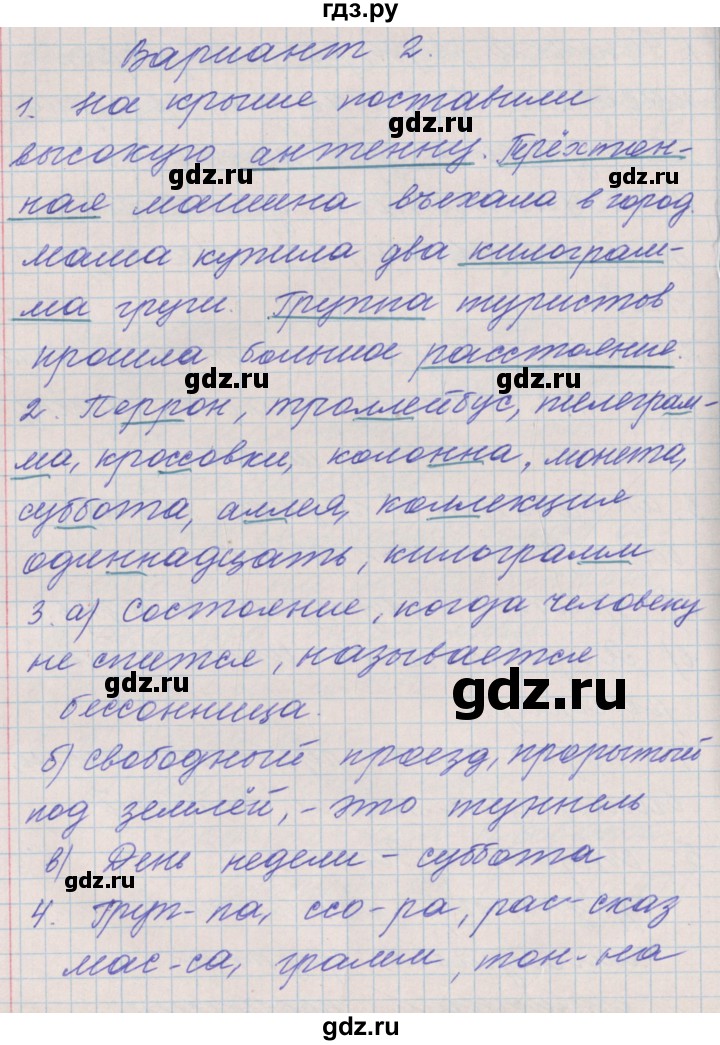 гдз.ру
Вариант 2.
1. На крыше поставили
gdz.ru
высокую антенну. Трёхтон-
gdz.ru
gdz.ru
ная машина въехала в город.
Мама купила два килограм-
gdz.ru
ма груш. Группа туристов
прошла больша расстояние.
gdz.ru
gdz.ru
2. Перрон, троллейбус, телеграм-
ма, кроссовки, колонна, монета,
gdz.ru
суббота, аллея, коллекция
одиннадцать, килограмм
gdz.ru
3. а) Состояние, когда человеку
не спится, называется
gdz.ru
gdz.ru
бессонница.
б) свободный проезд, прорытый
gdz.ru
под землёй, - это туннель
в) День недели - суббота
gdz.ru
4. Груп-па, ссо-ра, рас-сказ
мас-са, грамм, тон-на
gdz.ru